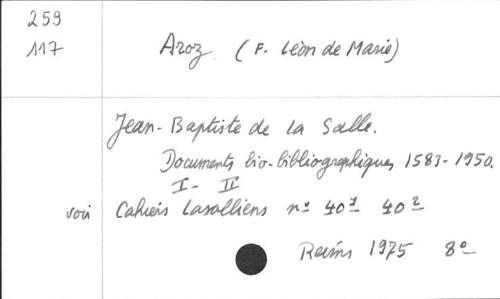 259
117 Aroz (F. Léon de Marie)
Jean-Baptiste de la Salle.
Documents bio-bibliographiques 1583-1950.
I- II
voir Cahiers Lasalliens nº 40¹ 40²
Reims 1975 8º